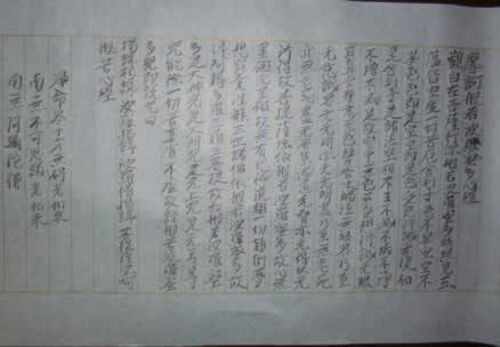 摩訶般若波羅蜜多心経
觀自在菩薩行深般若波羅蜜多時照見五
蘊皆空度一切苦厄舍利子色不異空空不
異色色即是空空即是色受想行識亦復如
是舍利子是諸法空相不生不滅不垢不淨
不增不減是故空中无色无受想行識无眼
耳鼻舌身意无色聲香味觸法无眼界乃至
无意識界无无明亦无无明盡乃至无老死
亦无老死盡无苦集滅道无智亦无得以无
所得故菩提薩埵依般若波羅蜜多故心无
罣礙无罣礙故无有恐怖遠離一切顛倒夢
想究竟涅槃三世諸佛依般若波羅蜜多故
得阿耨多羅三藐三菩提故知般若波羅蜜
多是大神咒是大明咒是无上咒是无等等
咒能除一切苦真實不虛故說般若波羅蜜
多咒即說咒曰
揭諦揭諦 波羅揭諦 波羅僧揭諦 菩提薩婆訶
般若心経
歸命尽十方無碍光如来
南無不可思議光如来
南無阿彌陀佛